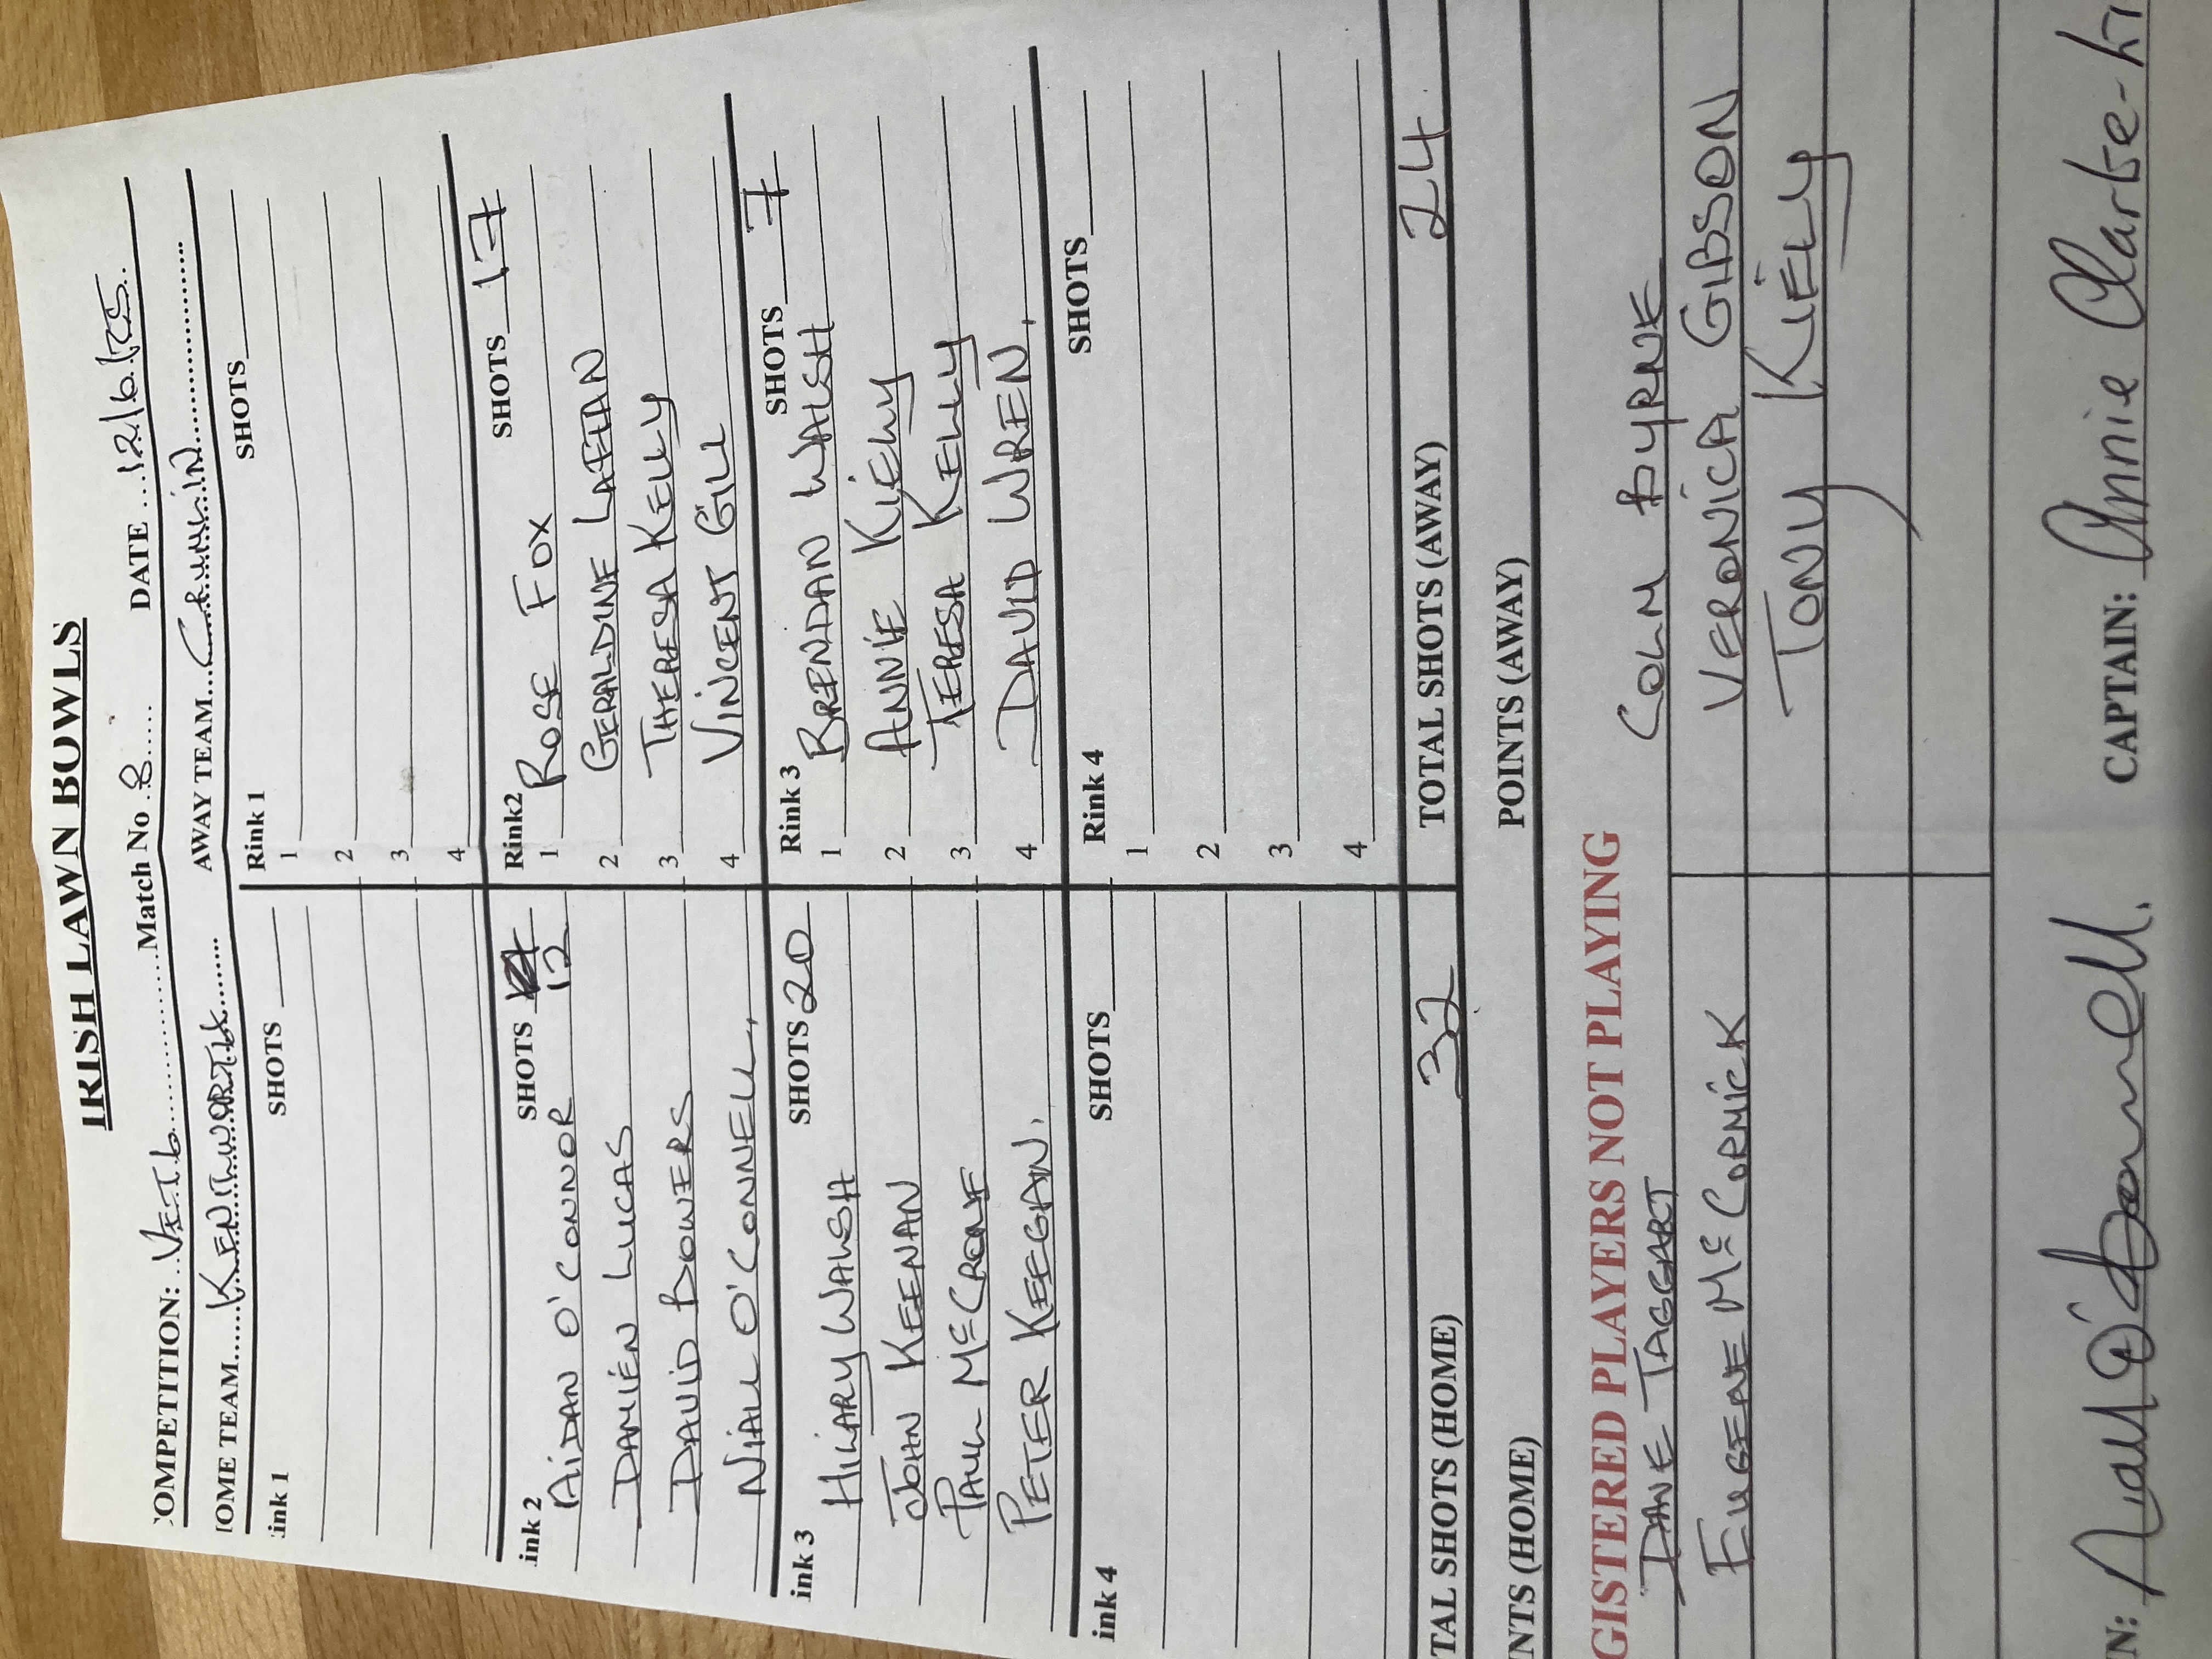 IRISH LAWN BOWLS
OMPETITION: VET.6 Match No 8 DATE 12/6/25
OME TEAM KENILWORTH AWAY TEAM CRUMLIN
ink 1 SHOTS Rink 1 SHOTS
1
2
3
4
ink 2 SHOTS 12 Rink2 SHOTS 17
AIDAN O'CONNOR 1 ROSE FOX
DAMIEN LUCAS 2 GERALDINE LAFFAN
DAVID BOWERS 3 THERESA KELLY
NIALL O'CONNELL 4 VINCENT GILL
ink 3 SHOTS 20 Rink 3 SHOTS 7
HILARY WALSH 1 BRENDAN WALSH
JOHN KEENAN 2 ANNIE KIELY
PAUL McCRONE 3 TERESA KELLY
PETER KEEGAN. 4 DAVID WREN.
ink 4 SHOTS Rink 4 SHOTS
1
2
3
4
TAL SHOTS (HOME) 32 TOTAL SHOTS (AWAY) 24
NTS (HOME) POINTS (AWAY)
GISTERED PLAYERS NOT PLAYING
DANE TAGGART COLM BYRNE
EUGENE McCORMICK VERONICA GIBSON
TONY KIELY
N: Niall O'Donnell. CAPTAIN: Annie Clarke-